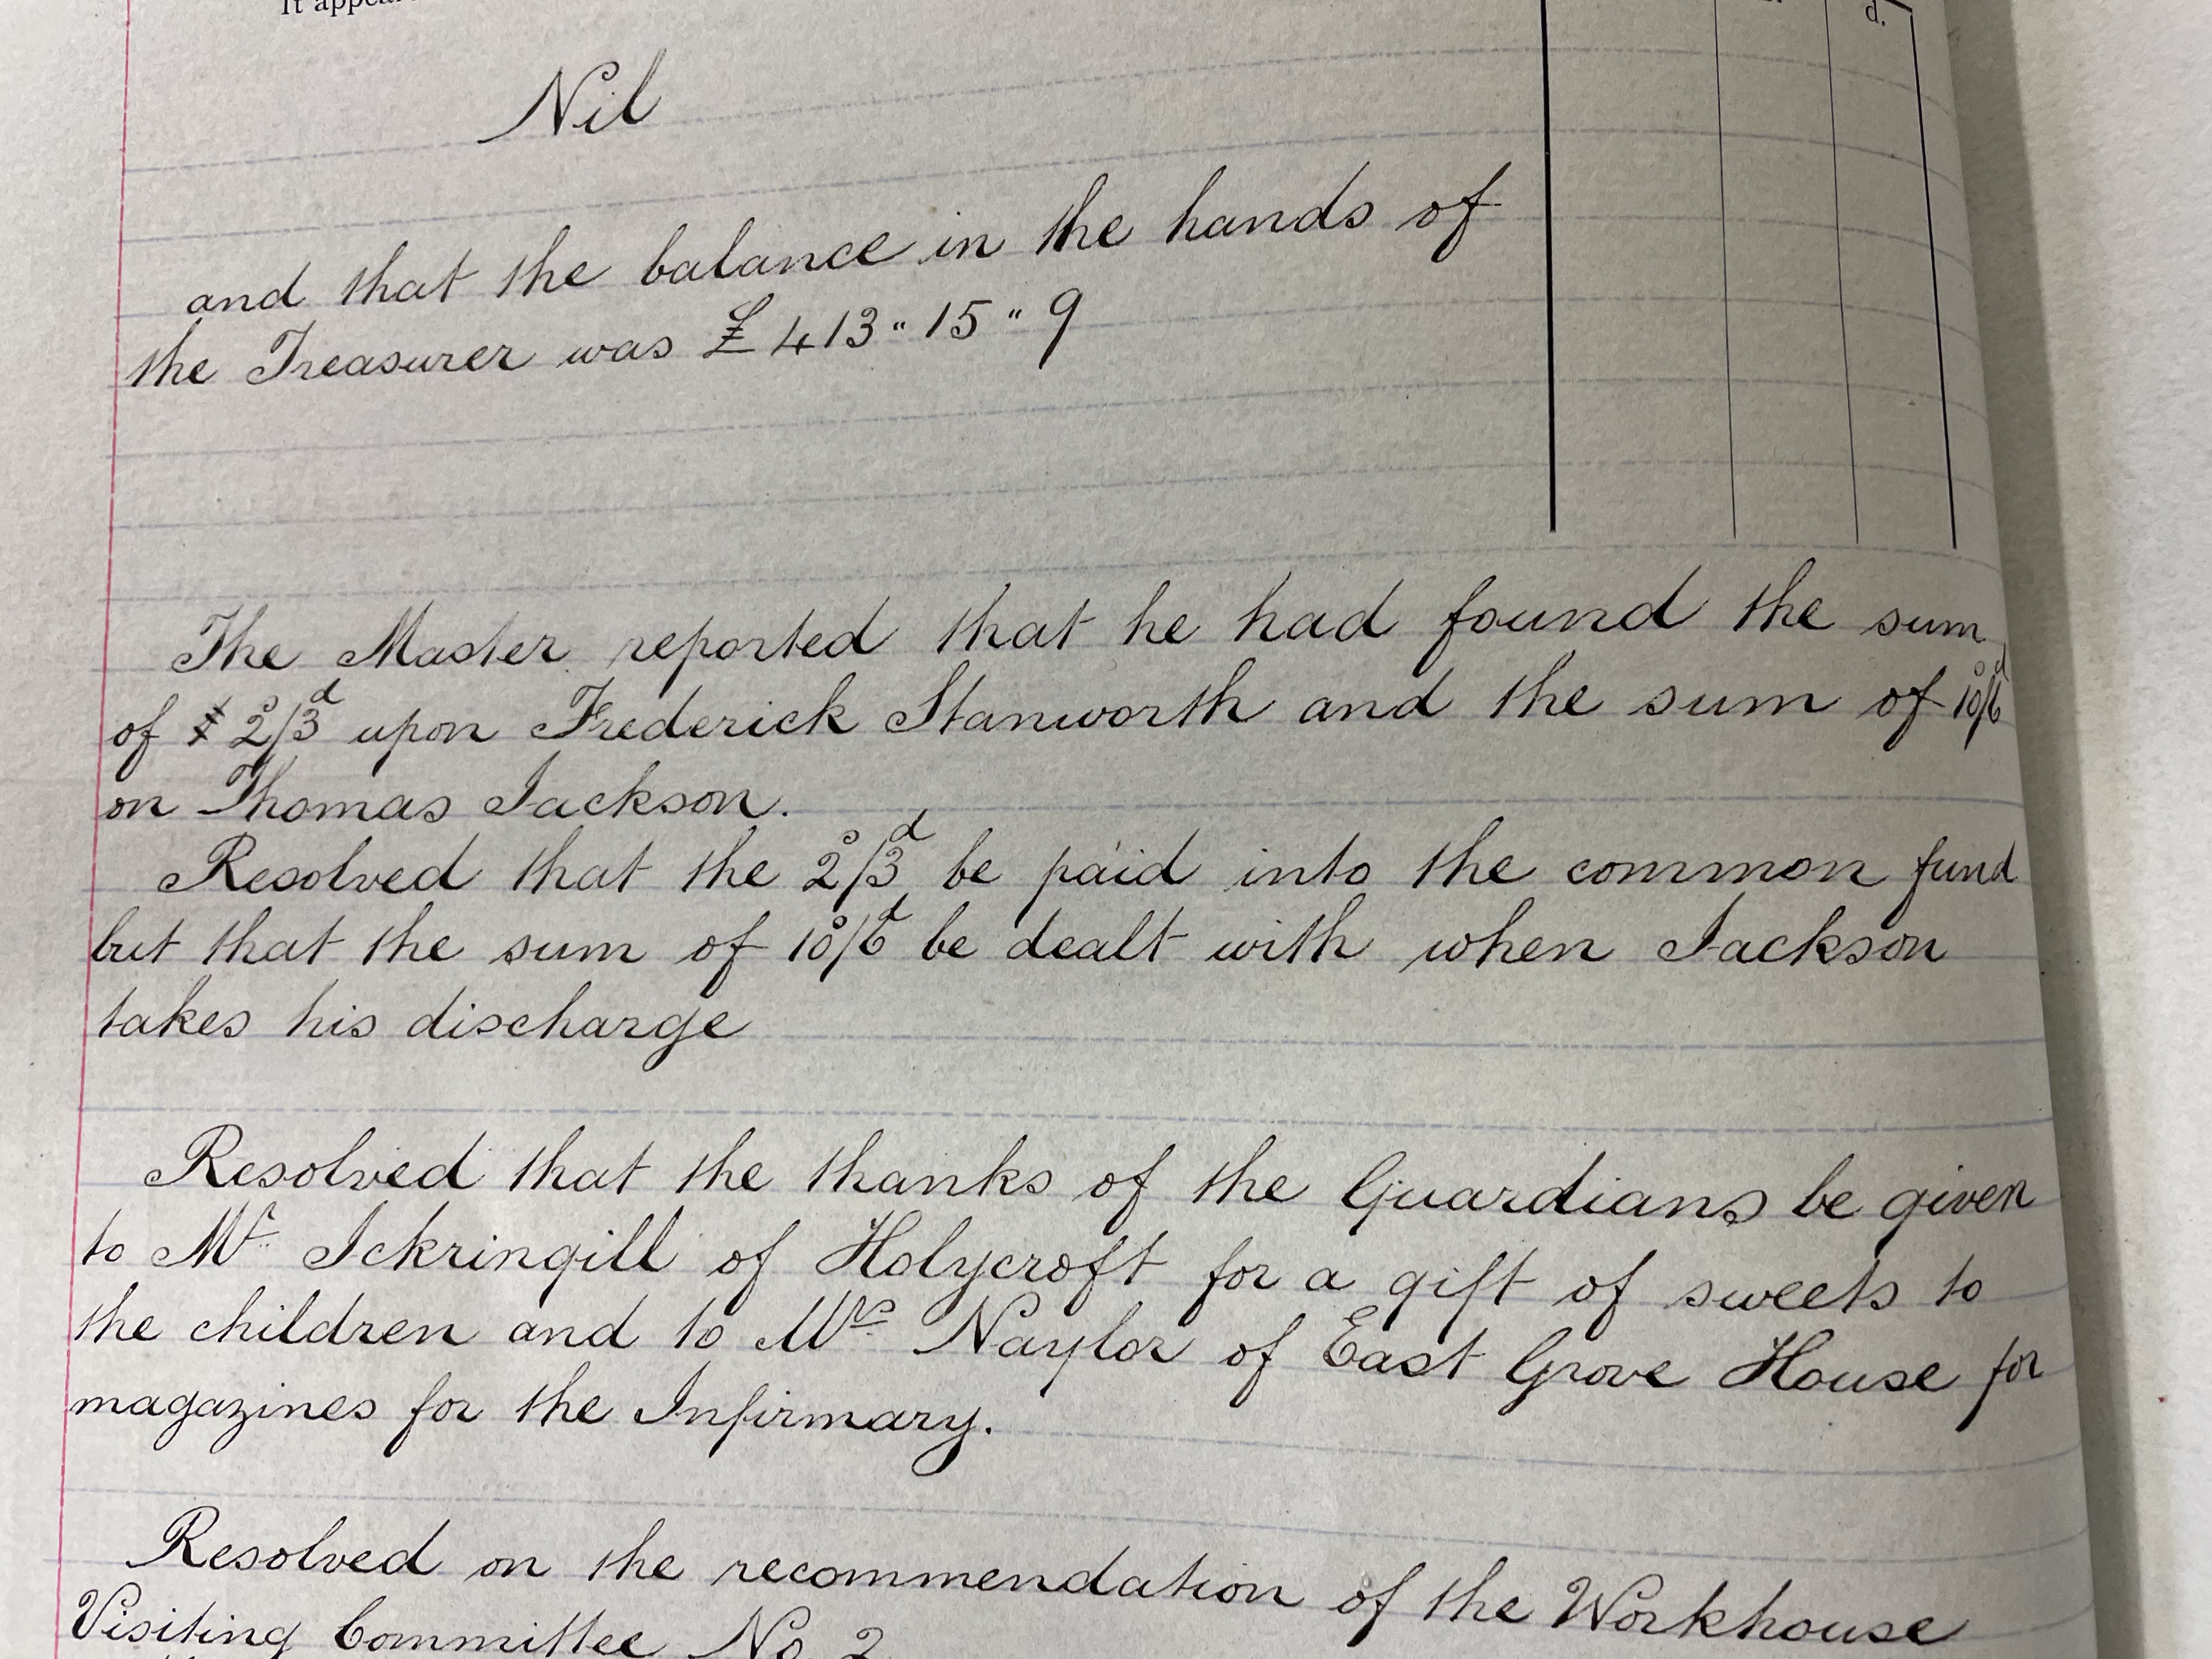 It appear
d.
Nil
and that the balance in the hands of
the Treasurer was £413 " 15 " 9
The Master reported that he had found the sum
of 2s/3d upon Frederick Stanworth and the sum of 10s/6d
on Thomas Jackson.
Resolved that the 2s/3d be paid into the common fund
but that the sum of 10s/6d be dealt with when Jackson
takes his discharge
Resolved that the thanks of the Guardians be given
to Mr. Ickringill of Holycroft for a gift of sweets to
the children and to Mrs. Naylor of East Grove House for
magazines for the Infirmary.
Resolved on the recommendation of the Workhouse
Visiting Committee No 2